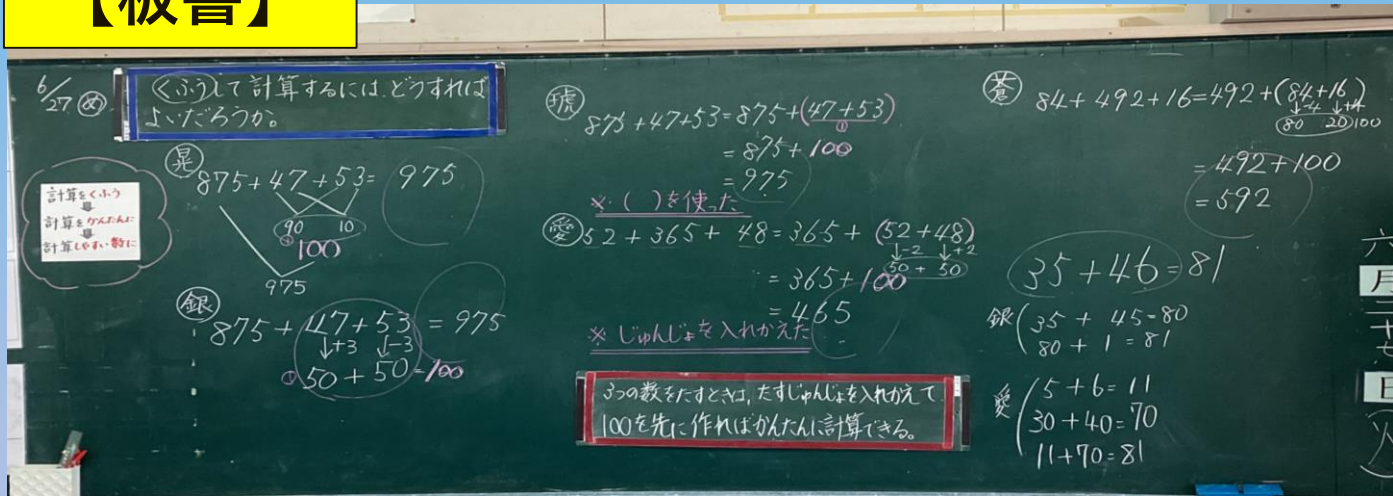 【板書】
6/27 め
くふうして計算するには、どうすれば
よいだろうか。
計算をくふう
↓
計算をかんたんに
↓
計算しやすい数に
晃
875+47+53=975
90 10
① 100
975
銀
875+47+53=975
↓+3 ↓-3
① 50+50=100
琥
875+47+53=875+(47+53)
①
=875+100
=975
※( )を使った
愛 52+365+48=365+(52+48)
↓-2 ↓+2
50+50
=365+100
=465
※じゅんじょを入れかえた
3つの数をたすときは、たすじゅんじょを入れかえて
100を先に作ればかんたんに計算できる。
蒼 84+492+16=492+(84+16)
↓-4 ↓+4
80 20 100
=492+100
=592
35+46=81
銀 35+45=80
80+1=81
愛 5+6=11
30+40=70
11+70=81
六
月
二
十
七
日